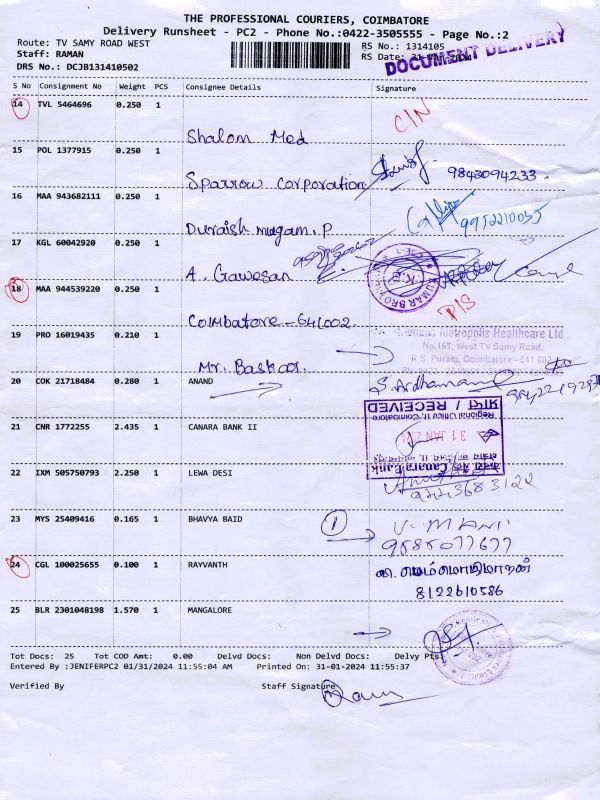 THE PROFESSIONAL COURIERS, COIMBATORE
Delivery Runsheet - PC2 - Phone No.:0422-3505555 - Page No.:2
Route: TV SAMY ROAD WEST
RS No.: 1314105
Staff: RAMAN
RS Date: 31-
DOCUMENT DELIVERY
DRS No.: DCJB131410502
S No Consignment No Weight PCS Consignee Details Signature
14 TVL 5464696 0.250 1
Shalom Med
C/N
15 POL 1377915 0.250 1
Sparrow Corporation 9843094233.
16 MAA 943682111 0.250 1
Duraish mugam.P 9952210035
17 KGL 60042920 0.250 1
A. Gawesan
18 MAA 944539220 0.250 1
Coimbatore - 641002
P/S
19 PRO 16019435 0.210 1
Mr. Baskar.
Metropolis Healthcare Ltd.,
No.161, West TV Samy Road,
R.S. Puram, Coimbatore - 641 002
20 COK 21718484 0.280 1 ANAND
21 CNR 1772255 2.435 1 CANARA BANK II
प्राप्त / RECEIVED
Regional Office II, Coimbatore
31 JAN
Canara Bank
22 IXM 505750793 2.250 1 LEWA DESI
9443683122
23 MYS 25409416 0.165 1 BHAVYA BAID
1
V. MANI
24 CGL 100025655 0.100 1 RAYVANTH
8122610586
25 BLR 2301048198 1.570 1 MANGALORE
Tot Docs: 25 Tot COD Amt: 0.00 Delvd Docs: Non Delvd Docs: Delvy Pts:
Entered By :JENIFERPC2 01/31/2024 11:55:04 AM Printed On: 31-01-2024 11:55:37
Verified By Staff Signature